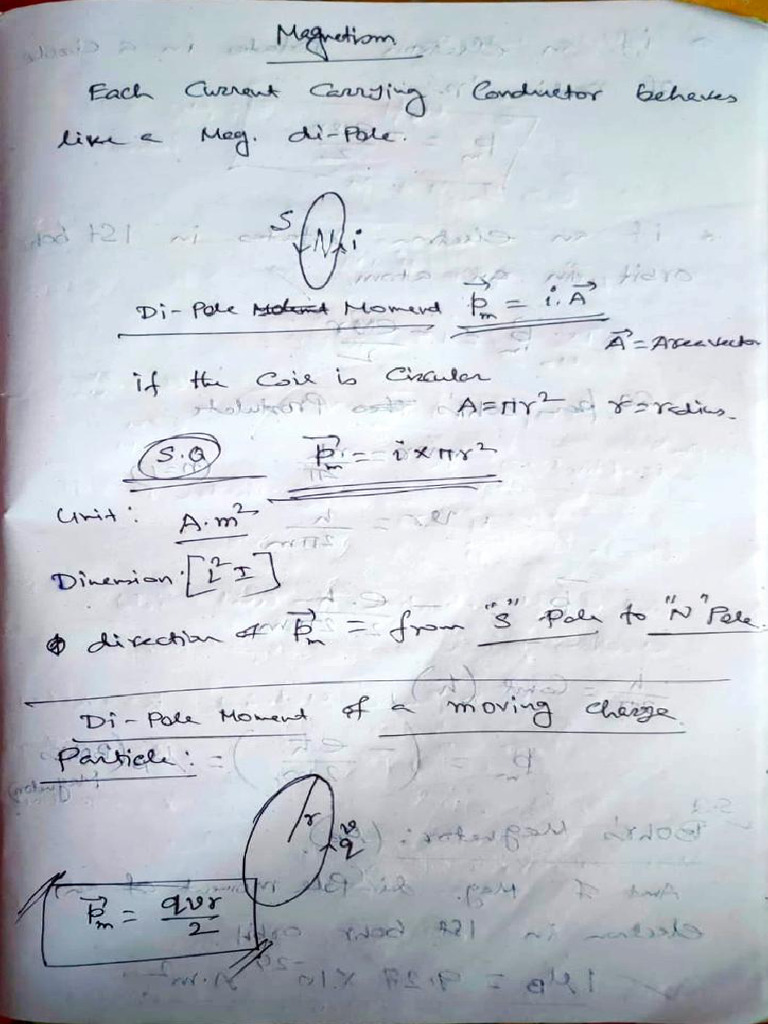 Magnetism
Each Current Carrying Conductor behaves
like a Mag. di-Pole.
S N i
Di-Pole Moment p⃗m = i.A⃗
A⃗ = Area vector
if the Coil is Circular
A=πr² r=radius.
S.Q p⃗m = i×πr²
Unit: A.m²
Dimension: [L²I]
direction of p⃗m = from "S" Pole to "N" Pole.
Di-Pole Moment of a moving charge
Particle:
r v
q
p⃗m = qvr/2